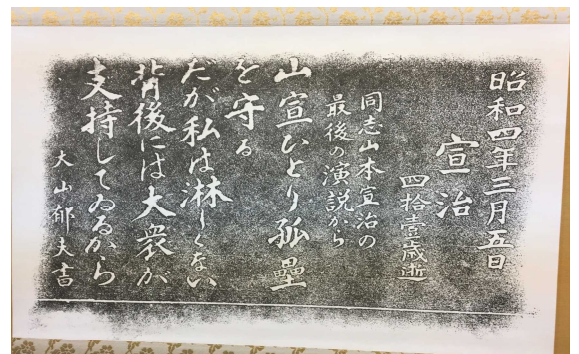 昭和四年三月五日
宣治
四拾壹歳逝
同志山本宣治の
最後の演説から
山宣ひとり孤塁
を守る
だが私は淋しくない
背後には大衆が
支持してゐるから
大山郁夫書